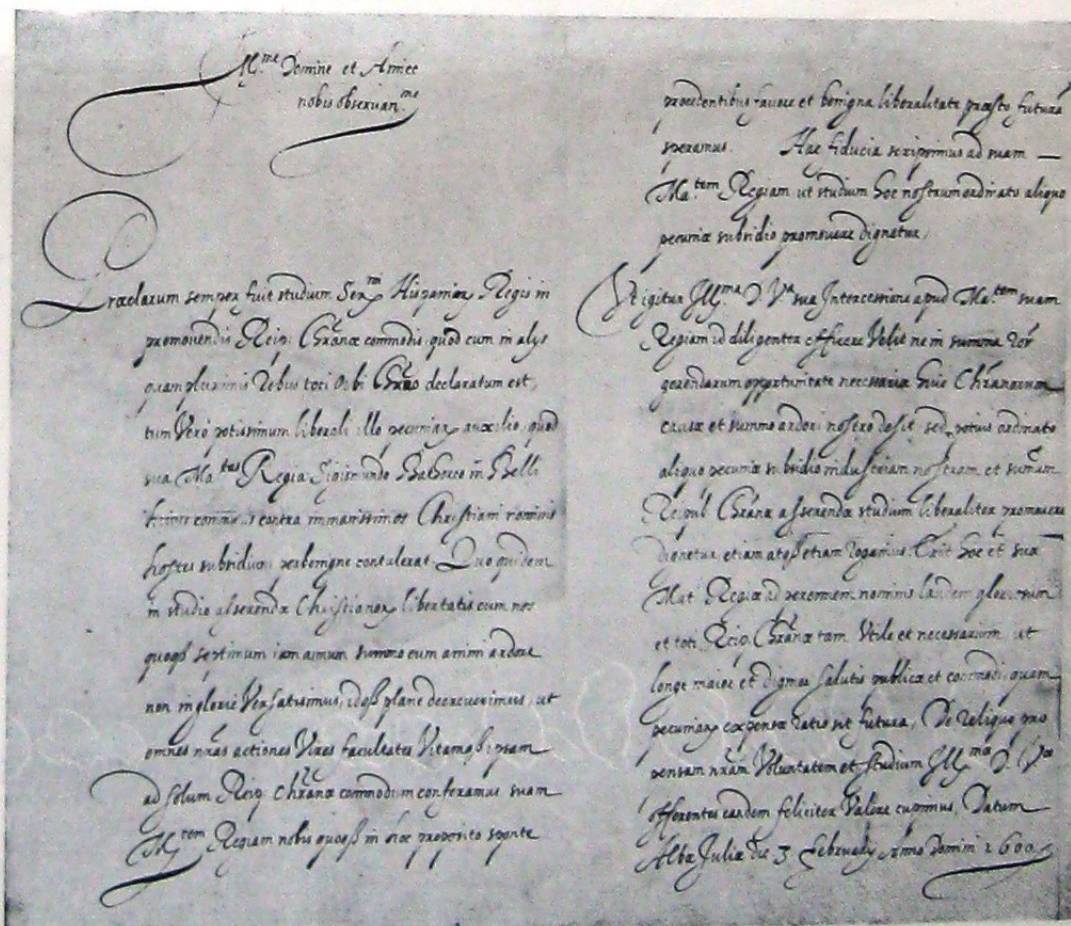 Ill.me Domine et Amice
nobis observan.me
Præclarum semper fuit studium Ser.mi Hispaniar. Regis in
promovendis Reip. Chr̃anæ commodis, quod cum in alys
quam plurimis rebus toti Orbi Chr̃ano declaratum est,
tum Vero potissimum liberali illo pecuniar. auxilio, quod
sua Ma.tas Regia Sigismundo Bathoreo in Belli
contra immanissimos Christiani nominis
hostes subsidium perbenigne contulerat. Quo quidem
in studio asserendæ Christianor. libertatis cum nos
quoq3 septimum iam annum summo cum animi ardore
non inglorie Versatisimus, idq3 plane decreverimus, ut
omnes nr̃as actiones Vires facultates Vitamq3 ipsam
ad solum Reip. Chr̃anæ commodum conferamus suam
M.tem Regiam nobis quoq3 in hoc proposito sponte
procedentibus favore et benigna liberalitate præsto futurã
speramus. Hac fiducia scripsimus ad suam —
Ma.tem Regiam ut studium hoc nostrum ordinato aliquo
pecuniæ subsidio promovere dignetur,
Ut igitur Ill.ma D. V.ra sua Intercessione apud Ma.tem suam
Regiam id diligenter efficere Velit ne in summa rer̃
gerendarum opportunitate necessaria huic Chr̃anorum
causæ et summo ardori nostro desit, sed potius ordinato
aliquo pecuniæ subsidio industriam nostram et sum̃um
Reipul. Chr̃anæ asserendæ studium liberaliter promovere
dignetur etiam atq3 etiam rogamus. Erit hoc et suæ
Mat. Regiæ ad perennem nominis laudem gloriosum
et toti Reip. Chr̃anæ tam Utile et necessarium ut
longe maior et dignior salutis publicæ et commodi, quam
pecuniar. expensæ ratio sit futura, De reliquo pro
pensam nr̃am Voluntatem et studium Ill.ma D. V.ræ
offerentes eandem feliciter Valere cupimus, Datum
Albæ Juliæ die 3 February Anno Domini 1600